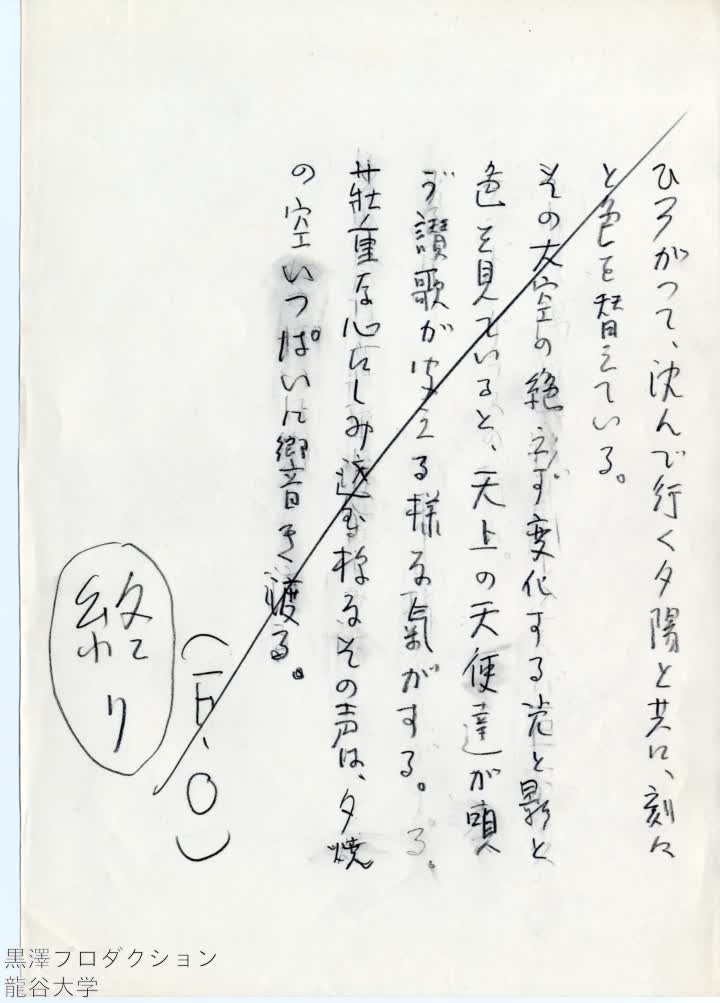 ひろがって、沈んで行く夕陽と共に、刻々
と色を替えている。
その大空の絶えず変化する光と影と
色を見ていると、天上の天使達が唄
う讃歌が聞える様な気がする。る。
荘重な心にしみ透る様なその声は、夕焼
の空いっぱいに響き渡る。
(一百、〇)
終り
黒澤プロダクション
龍谷大学